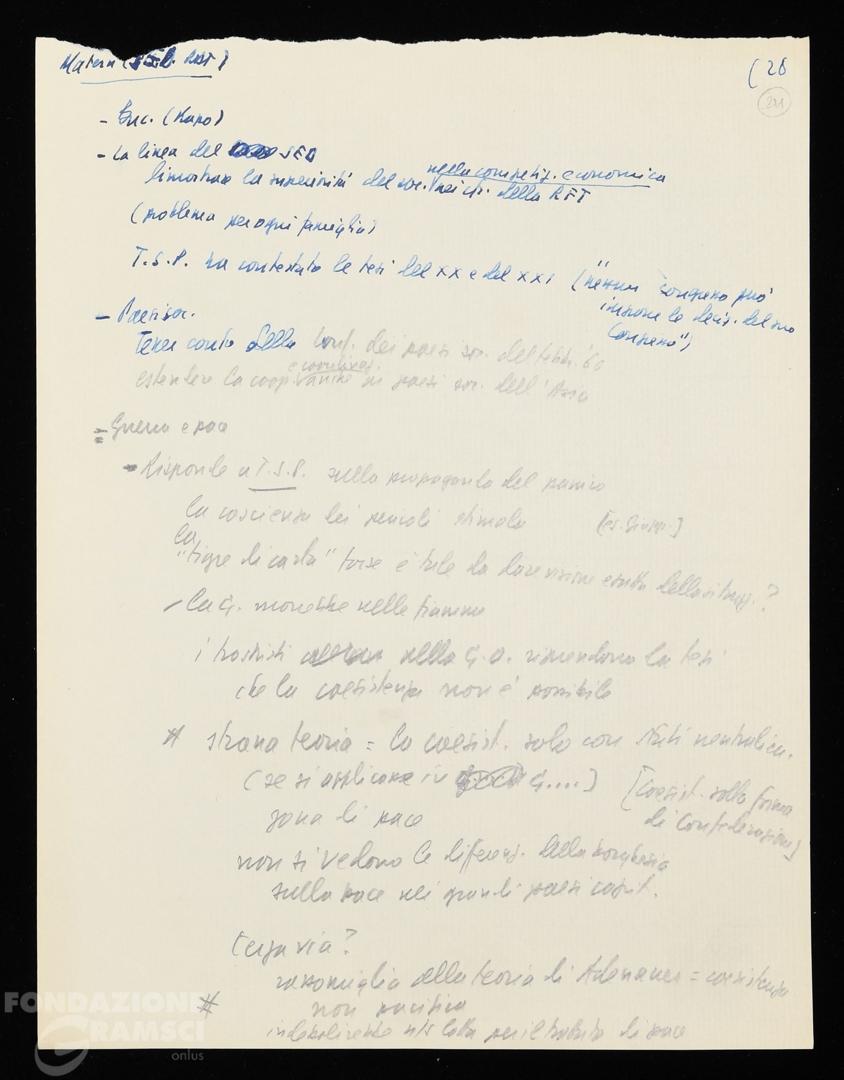 Matern (S.E.D. RDT)
(28
221
- Buc. (Mapo)
- La linea del SED
nella competiz. economica
dimostrare la superiorità del soc. nei cfr. della RFT
(problema per ogni famiglia)
T.S.P. ha contestato le tesi del XX e del XXI ("nessun congresso può
imporre le decis. del suo
Congresso")
- Paesi soc.
Tener conto della Conf. dei paesi soc. del febbr. '60
e coordinaz.
estendere la cooperazione ai paesi soc. dell'Asia
= Guerra e pace
- Risponde a T.S.P. sulla propaganda del panico
la coscienza dei pericoli stimola
la
"tigre di carta" forse è tale da dare visione esatta della situaz.?
- La G. morrebbe nelle fiamme
i trotskisti nella G.O. riprendono la tesi
che la coesistenza non è possibile
# strana teoria = la coesist. solo con Stati neutralizz.
(se si applicasse in G....) [Coesist. sotto forma
di Confederazione]
zona di pace
non si vedono le differenz. della borghesia
sulla pace nei grandi paesi capit.
terza via?
rassomiglia alla teoria di Adenauer = coesistenza
# non pacifica
indebolirebbe la lotta per il trattato di pace
FONDAZIONE
GRAMSCI
onlus